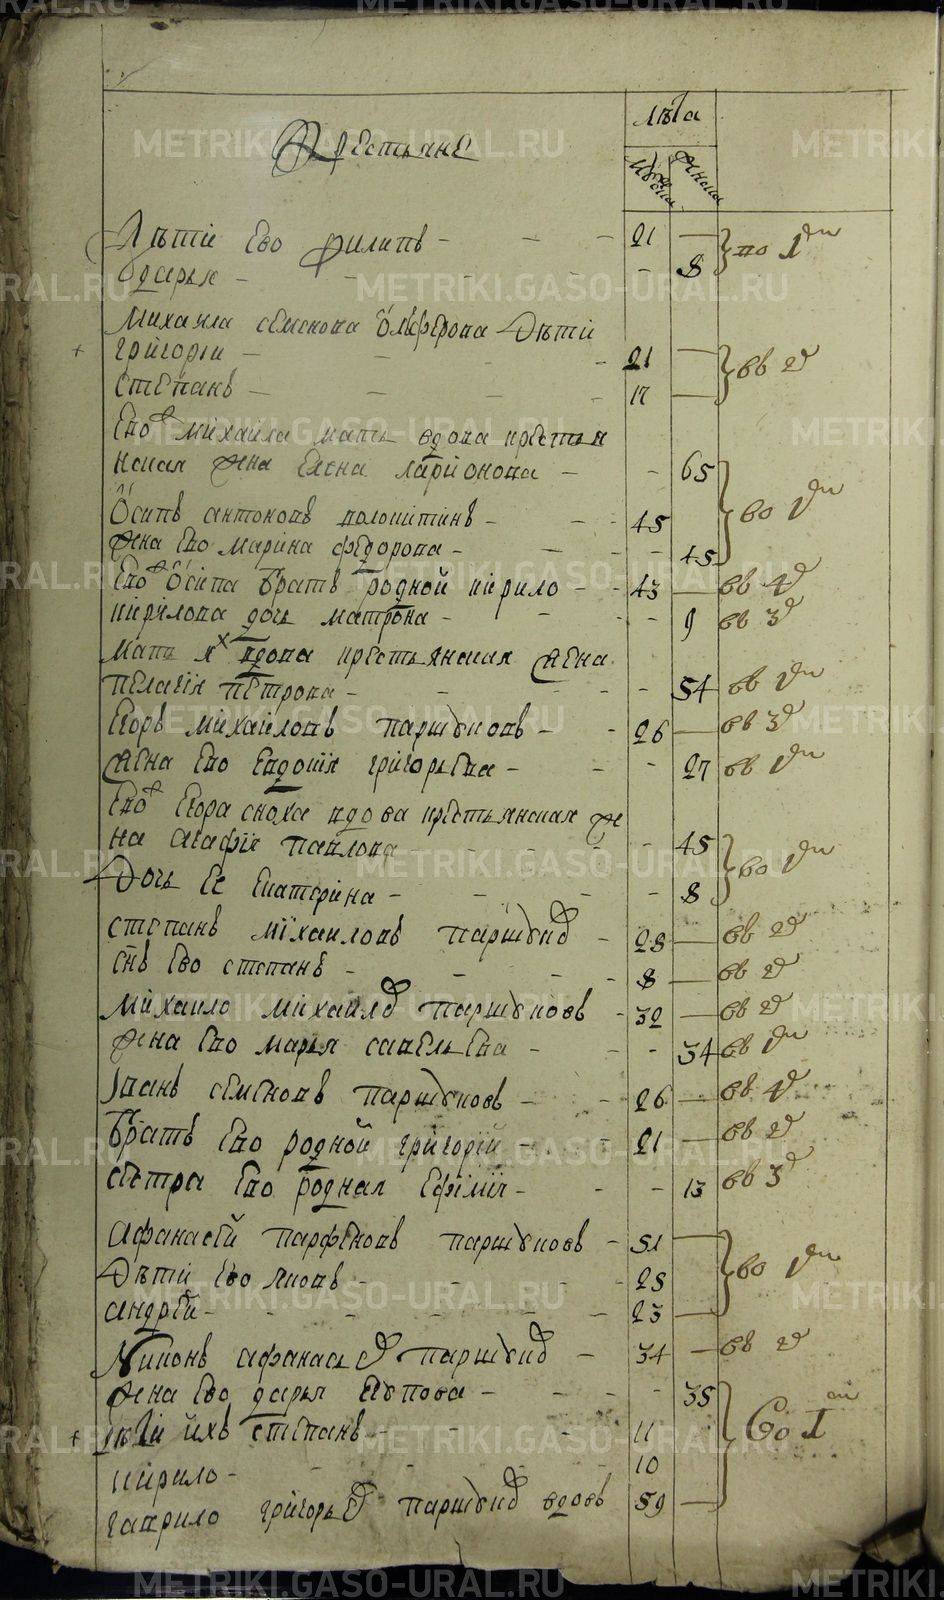 METRIKI.GASO-URAL.RU
лѣта
Крестьяне
мужеска женска
Дѣти ево филипъ - - - 21 — по 1
дарья - - - - 8
михаила семенова олѳерова дѣти
+ григореи - - - 21 — въ 2
степанъ - - - - 17 —
Ево ж михаила мать вдова крестья
нская жена елена ларионова - - 65
Осипъ антоновъ - - 45 во
жена ево марина федорова - - - 45
Ево ж осипа братъ родной кирило - - 43 — въ 4
кирилова дочь матрона - - - 9 въ 3
мать их вдова крестьянская жена
пелагия петрова - - - - 54 въ
Егоръ михайловъ паршуковъ - - 26 — въ 3
жена ево евдокия григорьева - - - 27 въ
Ево ж егора сноха вдова крестьянская же
на агафия павлова - - - 45 во
Дочь ее екатерина - - - - 8
степанъ михаиловъ паршуков - 28 — въ 2
снъ ево степанъ - - - 8 — въ 2
михаило михайлов паршуковъ - 32 — въ 2
жена ево марья савельева - - 34 въ
Іванъ семеновъ паршуковъ - - 26 — въ 4
братъ ево родной григорий - - 21 — въ 2
сестра ево родная ефимия - - - 13 въ 3
афанасей парфеновъ паршуковъ - 51 — во
Дѣти ево яковъ - - - 25
андрей - - - - 23 —
афанасьев паршуков - 34 — въ 2
жена ево дарья - - - 35
+ дѣти ихъ степанъ - - - 11 Со 1
кирило - - - - 10
гаврило григорьев паршуков вдовъ 59 —